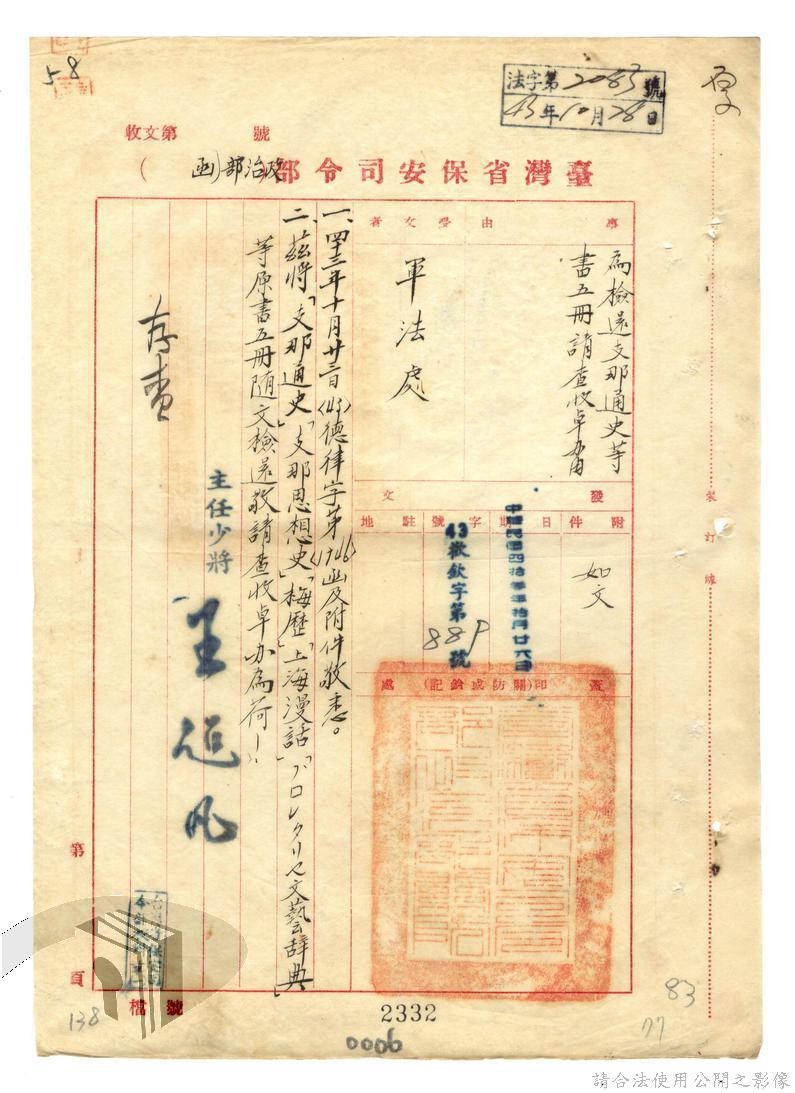 58
法字第2083號
43年10月28日
收文第 號
臺灣省保安司令部
(政治部)函
事由
為檢還支那通史等
書五冊請查收卓辦由
受文者
軍法處
附件
如文
發文
日期
中華民國四拾叁年拾月廿六日
字號
43徽欽字第889號
駐地
蓋印(關防或鈐記)處
一、四十三年十月廿三日(43)德律字第1946函及附件敬悉。
二、茲將「支那通史」「支那思想史」「梅歷」「上海漫話」「プロレタリヤ文藝辞典」
等原書五冊随文檢還敬請查收卓办為荷！
主任少將
王超凡
存查
裝訂線
第 頁
檔號
138
2332
0006
83
77
請合法使用公開之影像